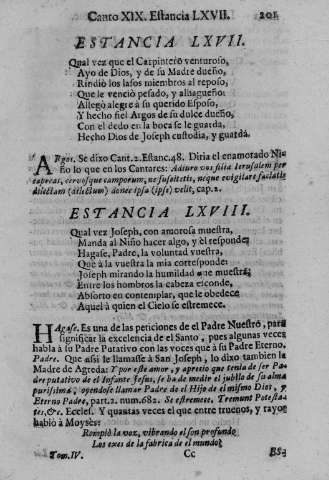 Canto XIX. Estancia LXVII. 201
ESTANCIA LXVII.
Qual vez que el Carpintero venturoso,
Ayo de Dios, y de su Madre dueño,
Rindió los lasos miembros al reposo,
Que le venció pesado, y alhagueño:
Allegò alegre à su querido Esposo,
Y hecho fiel Argos de su dulce dueño,
Con el dedo en la boca se le guarda,
Hecho Dios de Joseph custodia, y guarda.
ARgos. Se dixo Cant.2. Estanc.48. Diria el enamorado Ni-
ño lo que en los Cantares: Adiuro vos filiæ Ierusalem per
capreas, cervosque camporum, ne suscitetis, neque evigilare faciatis
dilectam (dilectum) donec ipsa (ipse) velit, cap.2.
ESTANCIA LXVIII.
Qual vez Joseph, con amorosa muestra,
Manda al Niño hacer algo, y èl responde;
Hagase, Padre, la voluntad vuestra,
Que à la vuestra la mia corresponde:
Joseph mirando la humildad que muestra,
Entre los hombros la cabeza esconde,
Absorto en contemplar, que le obedece
Aquel à quien el Cielo se estremece.
HAgase. Es una de las peticiones de el Padre Nuestro, para
significar la excelencia de el Santo, pues algunas veces
habla à su Padre Putativo con las voces que à su Padre Eterno,
Padre. Que assi le llamasse à San Joseph, lo dixo tambien la
Madre de Agreda: Y por este amor, y aprecio que tenia de ser Pa-
dre putativo de el Infante Jesus, se ha de medir el jubilo de su alma
purissima, oyendose llamar Padre de el Hijo de el mismo Dios, y
Eterno Padre, part.2. num.682. Se estremece. Tremunt Potesta-
tes, &c. Eccles. Y quantas veces el que entre truenos, y rayos
habiò à Moysès:
Rompiò la voz, vibrando el son profundo
Los exes de la fabrica de el mundo;
Tom.IV. Cc ES-